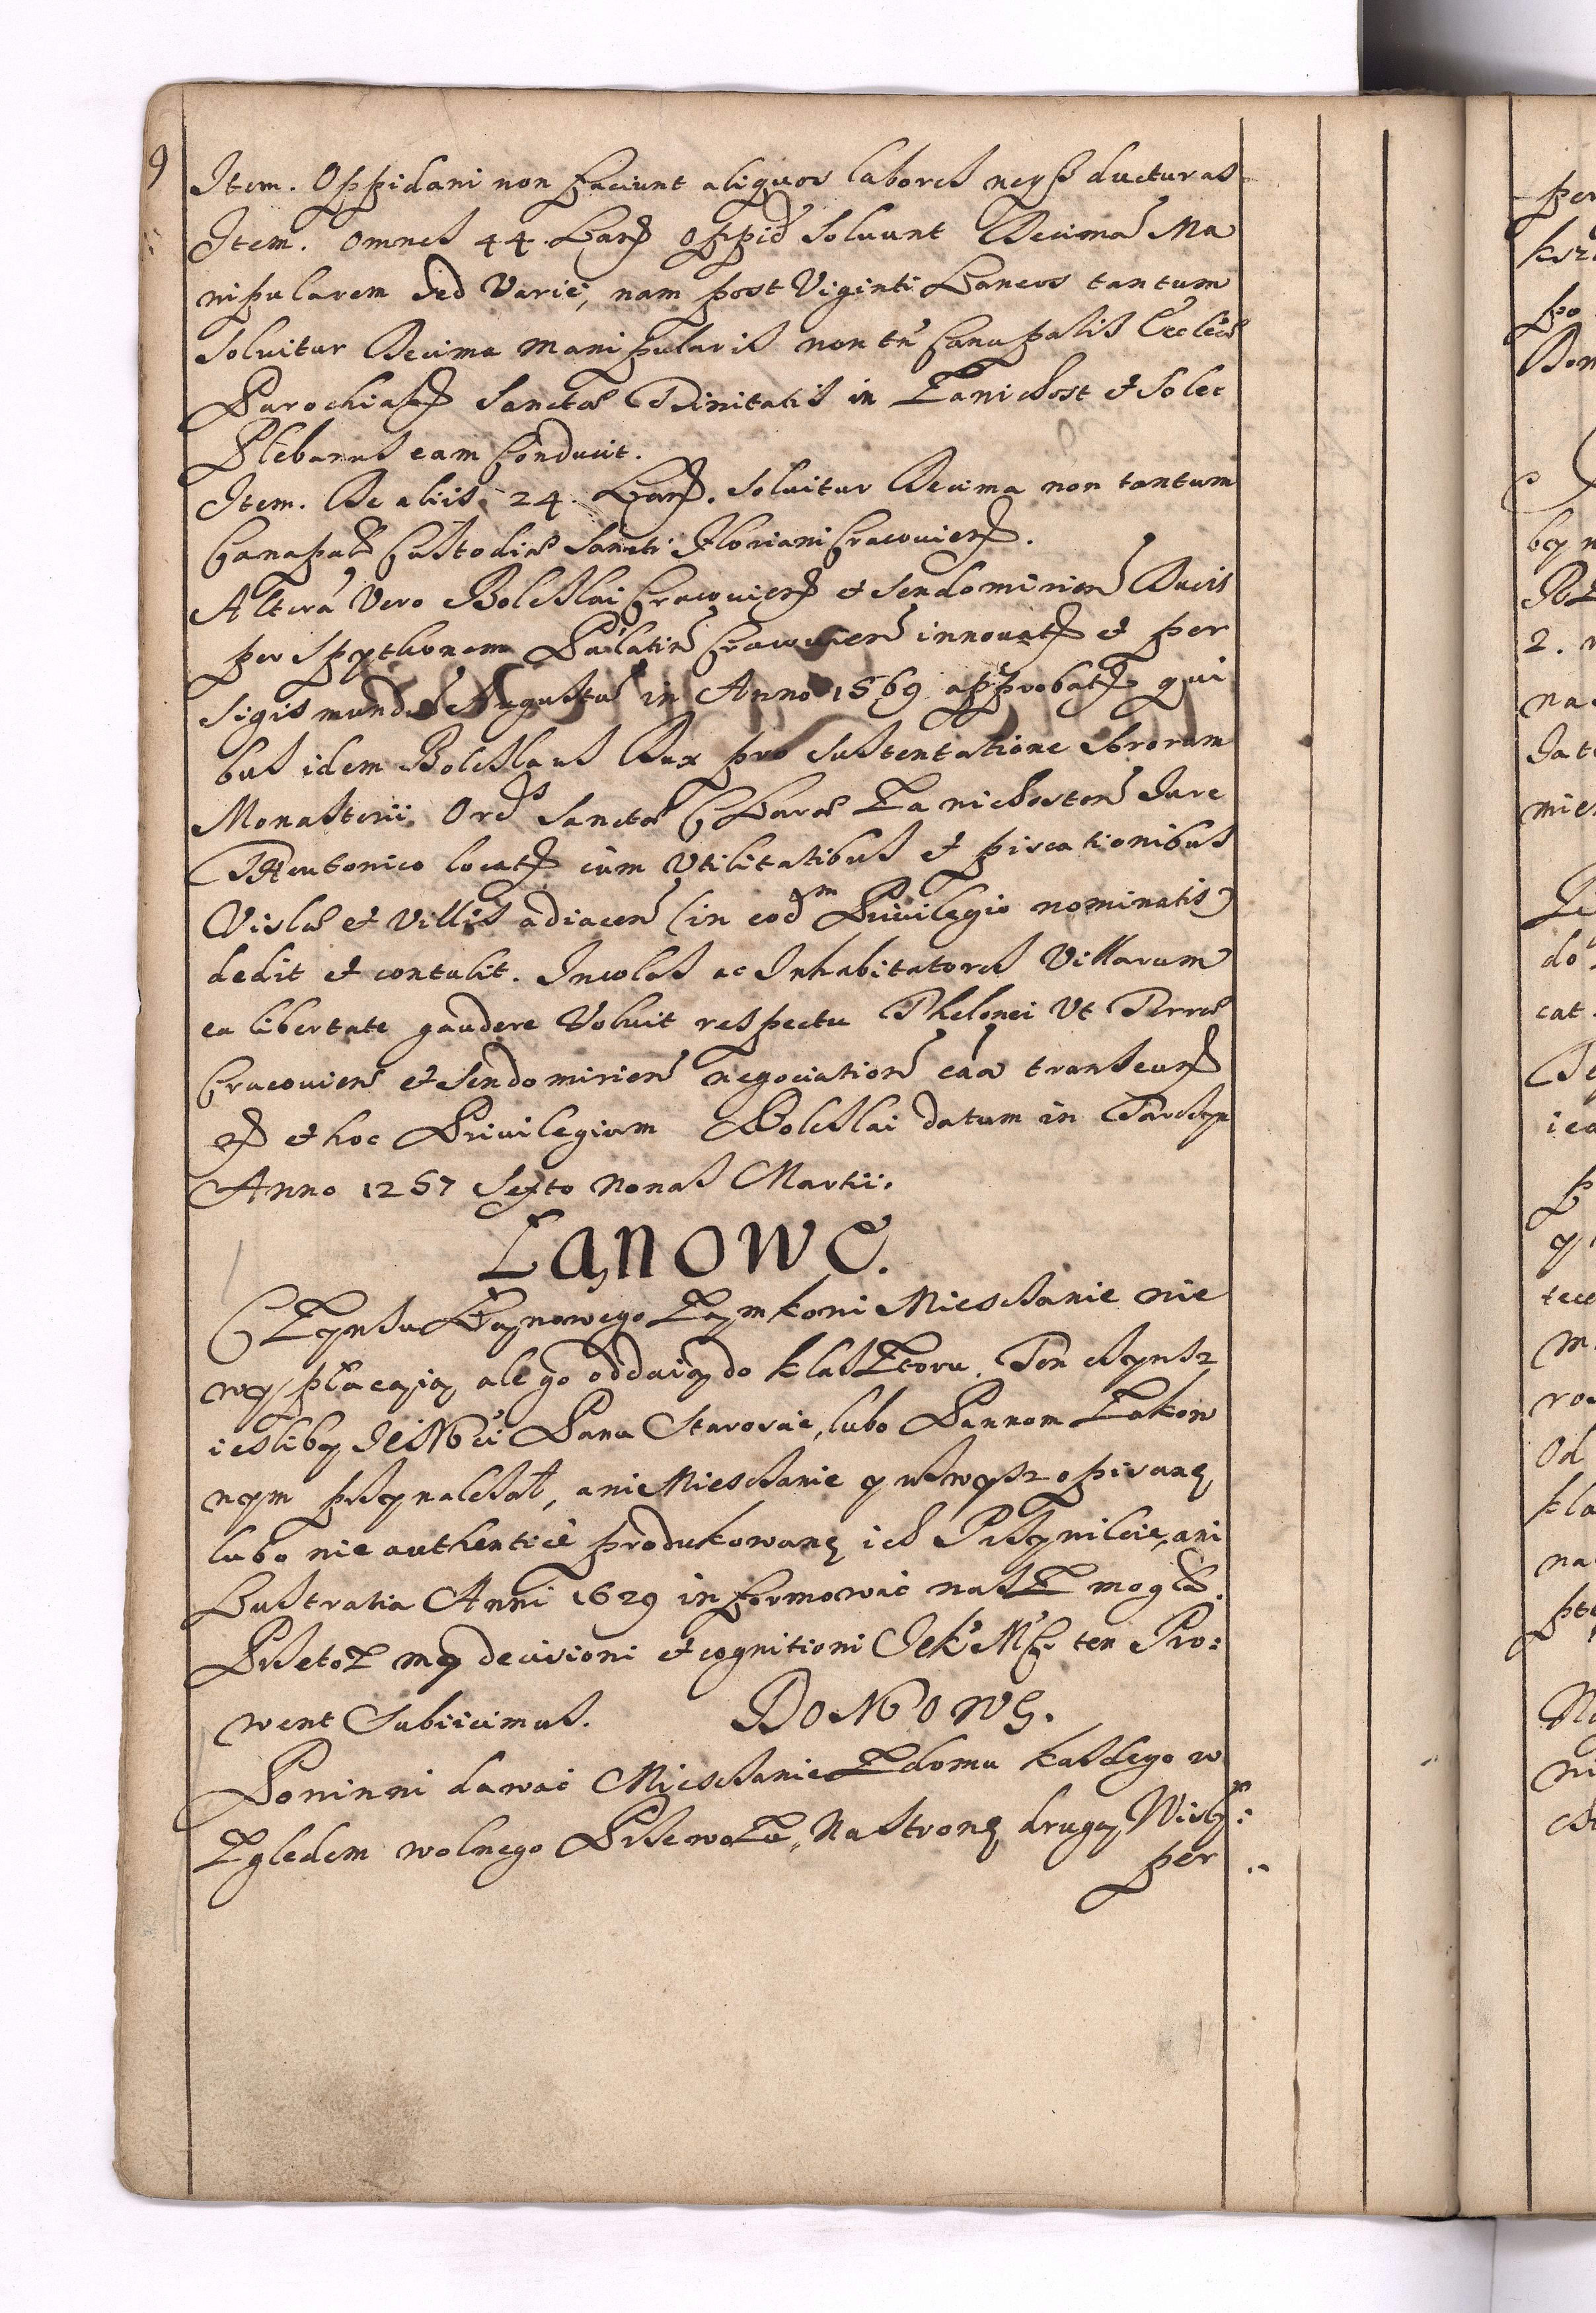 9
Item. Oppidani non faciunt aliquos labores neqз ducturas
Item. omnes 44 Lan Oppid soluunt Decima Ma
nipularem sed Varie, nam post Viginti Laneos tantum
soluitur Decima Manipularis non tn Canapalis Eccleae
Parochial Sanctae Trinitatis in Zanichost et Solec
Plebanus eam Conducit.
Item. De aliis 24. Lan. soluitur Decima non tantum
Canapal Custodiae Sancti Floriani Cracouien.
Altera Vero Boleslai Cracouien et Sendomirien Ducis
per Spythonem Palatin Cracouien innouat et per
Sigismund Augustu in Anno 1569 approbat qui
bus idem Boleslaus Dux pro Sustentatione Sororum
Monasterii Ord Sanctae Clarae Zanichosten Iure
Theutonico locat cum Vtilitatibus et piscationibus
Vislae et Villis adiacen (in eodm Priuilegio nominatis)
dedit et contulit. Incolas ac Inhabitatores Villarum
ea libertate gaudere Voluit respectu Thelonei Vt Terras
Cracouien et Sendomirien negociation ca transeun
et hoc Priuilegium Boleslai datum in
Anno 1257 Sexto Nonas Martii.
Łanowe.
CZynsu Łanowego Zamkowi Miesczanie nie
wypłacaią ale go oddaią do klasZtoru. Ten czynsz
iesliby IeMci Panu Staroscie, lubo Pannom Zakon
nym przynalezał, ani Miesczanie wyszopisane
lubo nie authentice produkowane ich Przywileie, ani
Lustratia Anni 1629 informować nasZ mogła.
PrzetoZ my decisioni et cognitioni IeK M ten Pro:
went Subiicimus. DOMOWE.
Powinni dawać Miesczanie Z domu kazdego w
Zgledem wolnego PrzewoZu, Na strone drugą Wisły:
per